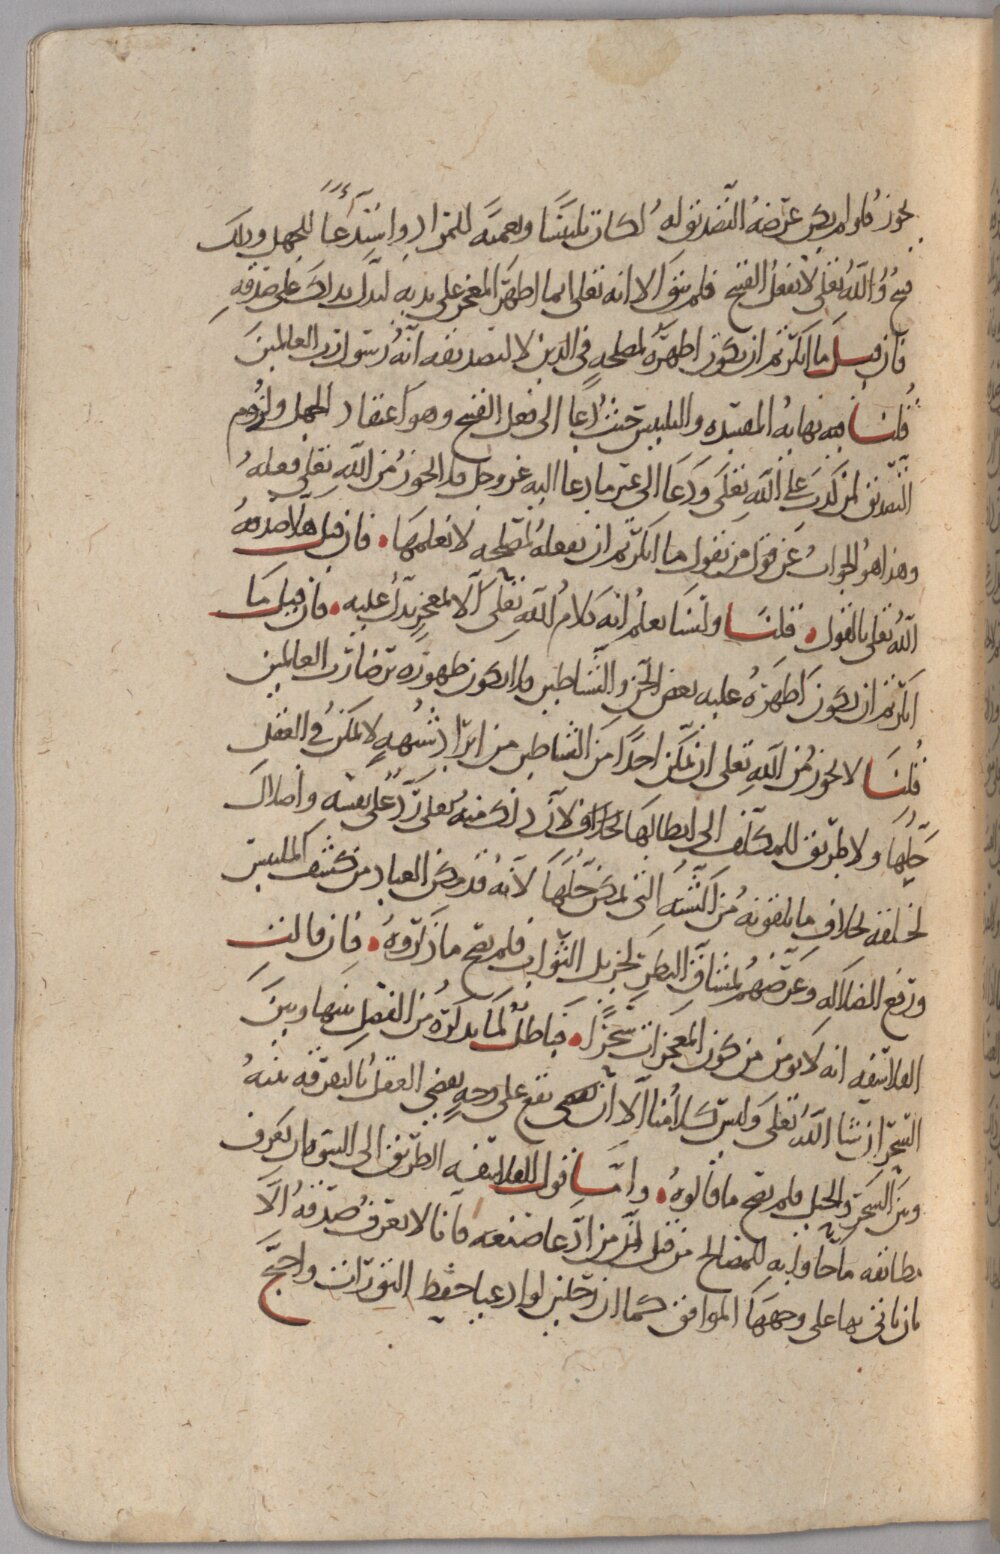 يجوز فلو لم يكن غرضه التصديق له لكان تلبيسًا وتعمية للمراد واستدعآءً للجهل وذلك
قبيح والله تعلى لا يفعل القبيح فلم يبق الا انه تعلى انما اظهر المعجز على يديه ليدل بذلك على صدقه
فان قيل ما انكرتم ان يكون اظهره لمصلحةٍ في الدين لا لتصديقه انه رسول رب العالمين
قلنا هذه نهاية المفسدة والتلبيس حيث دعا الى فعل القبيح وهو اعتقاد الجهل ولزوم
التصديق لمن كذب على الله تعلى ودعا الى غير ما دعا اليه عز وجل فلا يجوز من الله تعلى فعله
وهذا هو الجواب عن قول من يقول ما انكرتم ان يفعله لمصلحة لا نعلمها فان قيل هلا صدقه
الله تعلى بالقول قلنا ولسنا نعلم انه كلام الله تعلى الا لمعجزٍ يدل عليه فان قيل ما
انكرتم ان يكون اظهره عليه بعض الجن والشياطين فلا يكون ظهوره برضا رب العالمين
قلنا لا يجوز من الله تعلى ان يمكن احدًا من الشياطين من ايراد شبهةٍ لا يمكن في العقل
حلها ولا طريق للمكلف الى ابطالها لان ذلك منه تعلى رد على نفسه واضلال
لخلقه بخلاف ما يلقونه من الشبه التي يمكن حلها لانه قد مكن العباد من كشف الملبس
ورفع الضلالة وعرضهم لمشاق النظر لجزيل الثواب فلم يصح ما ذكروه فان قالت
الفلاسفة انه لا يؤمن من كون المعجزات سحرًا فباطل لما يذكره من الفصل بينها وبين
السحر ان شا الله تعلى وليس كلامنا الا ان تقع على وجهٍ يقضي العقل بالتفرقة بينه
وبين السحر والحيل فلم يصح ما قالوه واما قول الفلاسفة الطريق الى النبوة ان يعرف
مطابقة ما جاوا به للمصالح من قبل ان من ادعا صنعة فانا لا نعرف صدقه الا
بان ياتي بها على وجهها الموافق كما ان رجلين لو ادعيا حفظ التورات واحتج